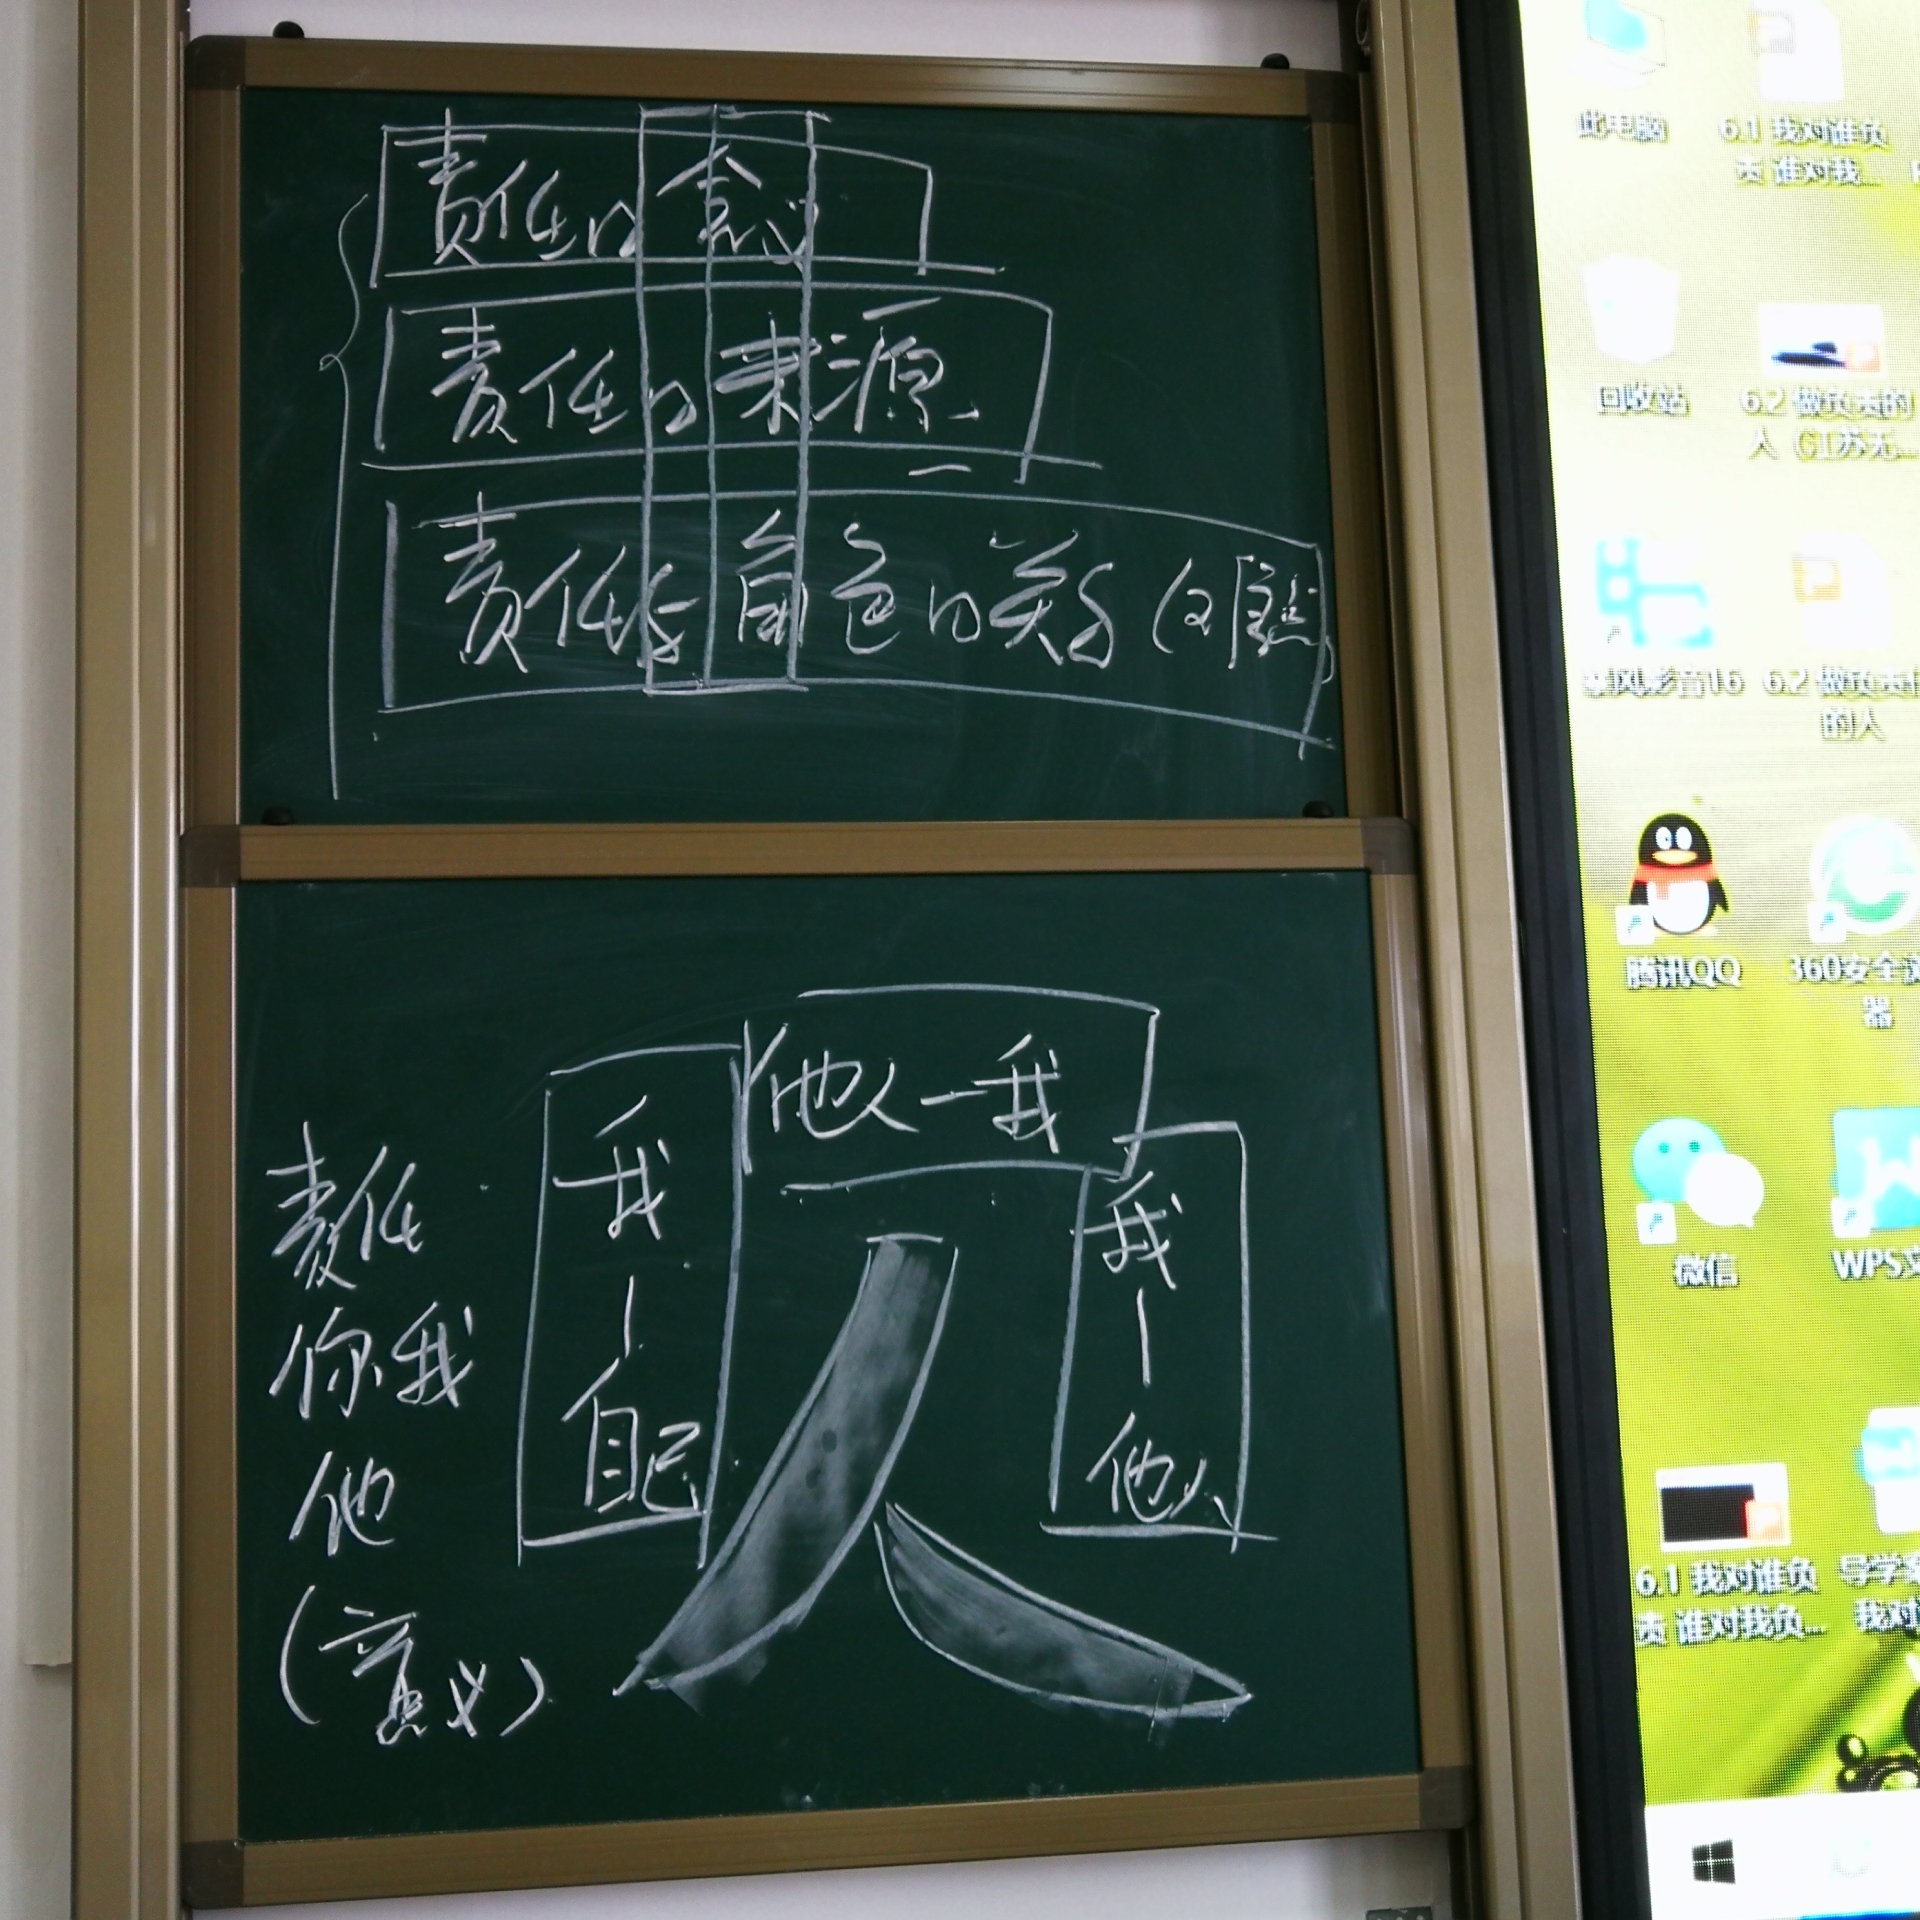 责任的含义
责任的来源
责任与角色的关系
他人—我
我—自己
我—他人
责任
你我
他
(意义)
此电脑
6.1 我对谁负
责 谁对我...
回收站
6.2 做负责的
人
6.2 做负责任
的人
腾讯QQ
360安全浏
器
微信
WPS文
6.1 我对谁负
责 谁对我负...
导学案
我对